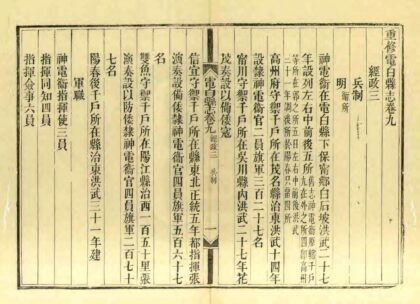 重修電白縣志卷九
經政三
兵制
明 衛所
神電衛在電白縣下保甯鄉白石坡洪武二十七
年設列左右中前後五所 舊志神電衛原轄千戶所九在外之所四卽高州
高州府守禦千戶所在茂名縣治東洪武十四年
設隸神電衛官二員旗軍三百二十七名
甯川守禦千戶所在吳川縣內洪武二十七年花
茂奏設以備倭寇
電白縣志卷九 經政三 兵制 一
信宜守禦千戶所在縣東北正統五年都指揮張
演奏設備倭隸神電衛官四員旗軍五百六十七
雙魚守禦千戶所在陽江縣治西一百五十里張
演奏設以防倭隸神電衛官四員旗軍二百七十
七名
陽春後千戶所在縣治東洪武三十一年建
軍職
神電衛指揮使三員
指揮同知四員
指揮僉事六員